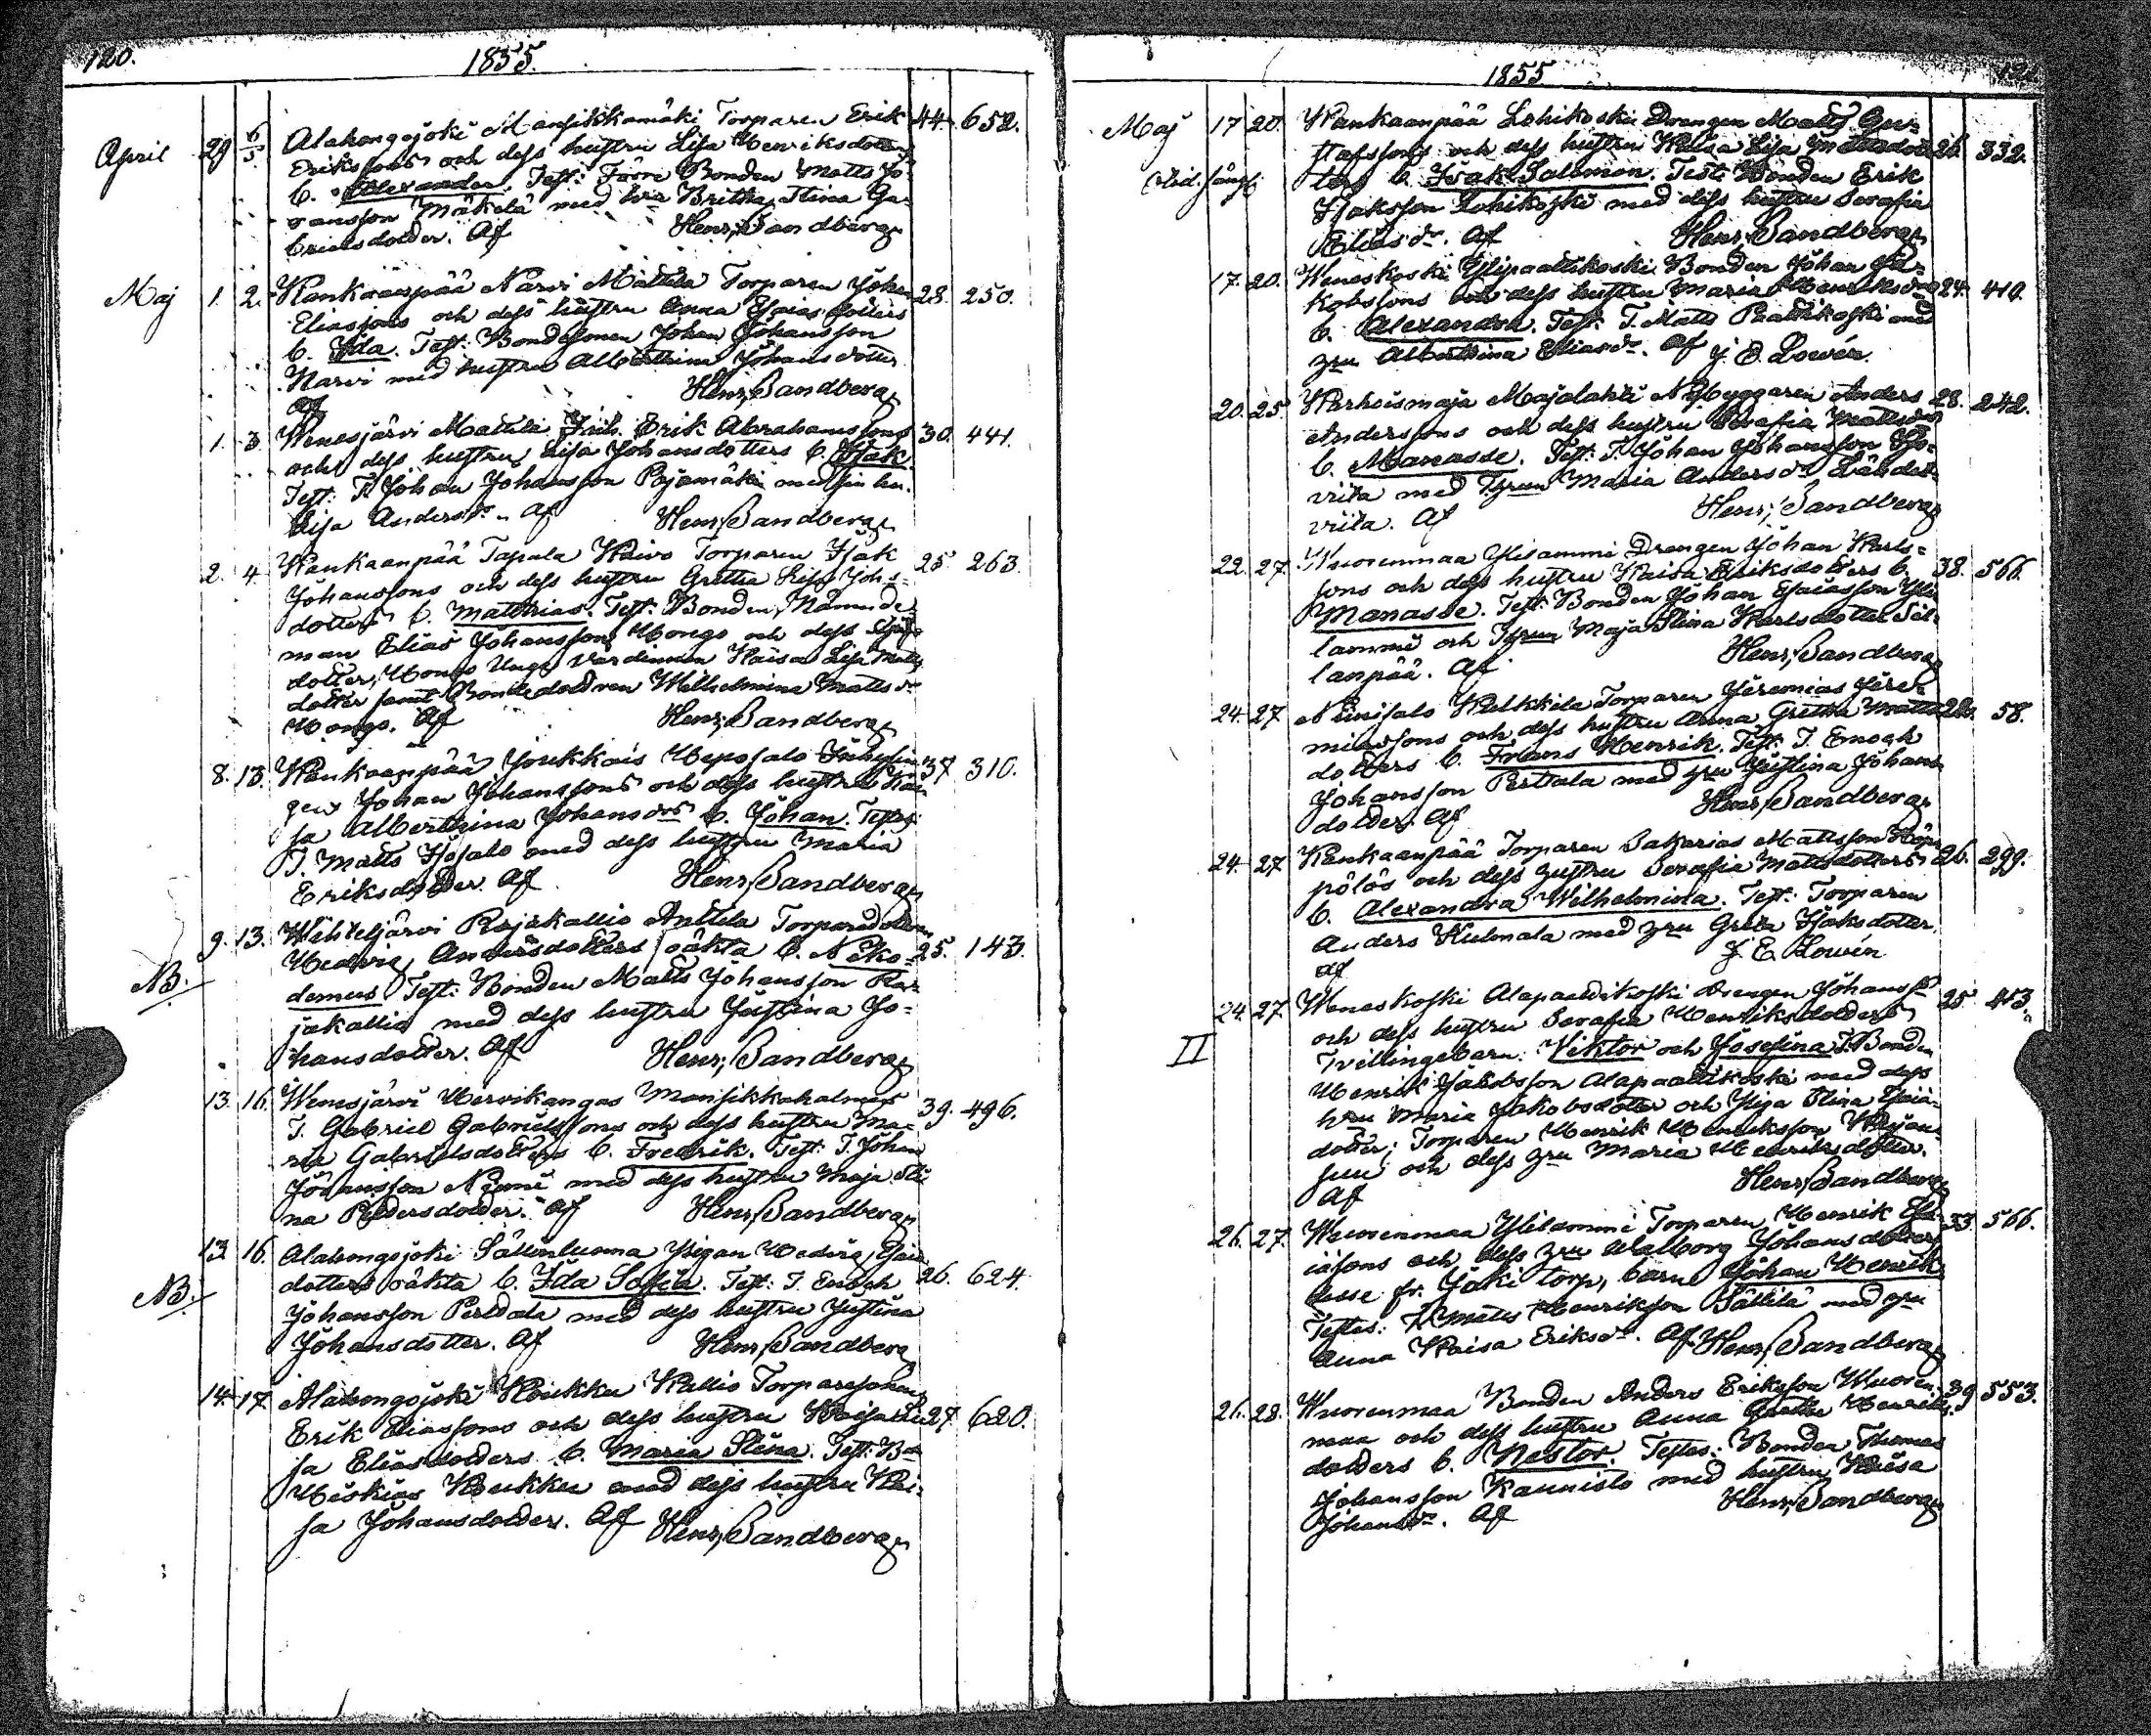 120.
1855.
April 29 6/5 Alahongojoki Mansikkamäki Torparen Erik 44. 652.
Erikssons och dess hustru Lisa Henriksdotters
b. Alexander. Test: Förre Bonden Matts Jo-
hansson Mäkelä med hru Britha Stina Ga-
brielsdotter. Af Henr; Sandberg
Maj 1. 2. Kankaanpää Narvi Mattila Torparen Johan 28. 250.
Eliassons och dess hustru Anna Esaias dotters
b. Ida. Test: Bondesonen Johan Johansson
Narvi med hustru Alberthina Johansdotter
Af Henr; Sandberg
1. 3 Wenesjärvi Mattila Inh. Erik Abrahamssons 30. 441.
och dess hustru Lisa Johansdotters b. Isak
Test: T. Johan Johansson Pajamäki med sin hu.
Lisa Andersdr. Af Henr; Sandberg
2. 4. Kankaanpää Tapala Raivo Torparen Isak 25. 263.
Johanssons och dess hustru Gretha Lisa Johs
dotters b. Matthias. Test: Bonden, Nämnde-
man Elias Johansson Hongo och dess
dotter, Hongo Unga Värdinnan Kaisa Lisa Matts
dotter samt Bondedottren Wilhelmina Mattsdr
Hongo. Af Henr; Sandberg
8. 13. Kankaanpää Joukkais Heposalo Inhysin- 37 310.
gen Johan Johanssons och dess hustru Kai-
sa Alberthina Johansdrs b. Johan. Testes:
T. Matts Isosalo med dess hustru Maria
Eriksdotter. Af Henr; Sandberg
NB. 9. 13. Wihteljärvi Rajakallio Anttila Torparedottren
Hedvig Andersdotters oäkta b. Niko- 25. 143.
demus Test: Bonden Matts Johansson Ra-
jakallio med dess hustru Justina Jo-
hansdotter. Af Henr; Sandberg
13. 16. Wenesjärvi Hervikangas Mansikkakalmes 39. 496.
T. Gabriel Gabrielssons och dess hustru Ma-
ria Gabrielsdotters b. Fredrik. Test: T. Johan
Johansson Niemi med dess hustru Maja Sti
na Pettersdotter. Af Henr; Sandberg
NB. 13 16. Alahongojoki Sällinluoma Pigan Hedvig Esaie
dotters oäkta b. Ida Sofia. Test: T. Enoch 26. 624.
Johansson Perttala med dess hustru Justina
Johansdotter. Af Henr; Sandberg
14. 17. Alahongojoki Koukku Kallio Torparesonen
Erik Eliassons och dess hustru Kaisa Lii 27. 620.
sa Eliasdotters b. Maria Stina. Test: Bdn
Hiskias Koukku med dess hustru Kai-
sa Johansdotter. Af Henr; Sandberg
1855. 121.
Maj 17 20. Kankaanpää Lohikoski Drengen Matts Gu-
stafssons och dess hustru Kaisa Lisa Mattsdot 26. 332.
ters b. Isak Salomon. Test: Bonden Erik
Isaksson Lohikoski med dess hustru Serafia
Eliasdr. Af Henr; Sandberg
17. 20. Weneskoski Ylipaattikoski Bonden Johan Ja-
kobssons och dess hustru Maria Henriksdrs 24. 410.
b. Alexandra. Test: T. Matts Paattikoski med
hru Alberthina Eliasdr. Af J. E. Lowén.
20. 25. Karhoismaja Majalahti Nybyggaren Anders 28. 242.
Anderssons och dess hustru Serafia Mattsdrs
b. Manasse. Test: T. Johan Johansson Jo-
vrita med Hrun Maria Andersdr Lähde-
vrita. Af Henr; Sandberg
22. 27. Wuorenmaa Ylilammi Drengen Johan Karls-
sons och dess hustru Kaisa Eriksdotters b. 38. 566.
Manasse. Test: Bonden Johan Esaiasson Yli
lammi och Hrun Maja Stina Karlsdotter Säl-
lanpää. Af Henr; Sandberg
24. 27 Niinisalo Kulkkila Torparen Jeremias Jere-
miassons och dess hustru Anna Gretha Matts 20. 58.
dotters b. Frans Henrik. Test: T. Enoch
Johansson Perttala med hru Justina Johans-
dotter. Af Henr; Sandberg
24. 27 Kankaanpää Torparen Sakarias Mattsson
pölös och dess hustru Serafia Mattsdotters 26. 299.
b. Alexandra Wilhelmina. Test: Torparen
Anders Kulmala med hru Greta Isaksdotter.
Af J. E. Lowén
24. 27. Weneskoski Alapaattikoski Drengen Johanss 25. 413.
II och dess hustru Serafia Henriksdotters
Tvillingebarn: Viktor och Josefina T. Bonden
Henrik Jakobsson Alapaattikoski med dess
hru Maria Jakobsdotter och Piga Stina Esaia-
dotter; Torparen Henrik Henriksson
suu och dess hru Maria Henriksdotter.
Af Henr; Sandberg
26. 27. Wuorenmaa Ylilammi Torparen Henrik Esa- 33. 566.
iasons och dess hru Walborg Johansdotters
fr. Jäki torp, barn Johan Henrik
Testes: T. Matts Henriksson Sättilä med hru
Anna Kaisa Eriksdr. Af Henr; Sandberg
26. 28. Wuorenmaa Bonden Anders Eriksson Wuoren- 39 553.
maa och dess hustru Anna Gretha Henriks
dotters b. Nestor. Testes: Bonden Thomas
Johansson Kaunisto med hustru Kaisa
Johansdr. Af Henr; Sandberg